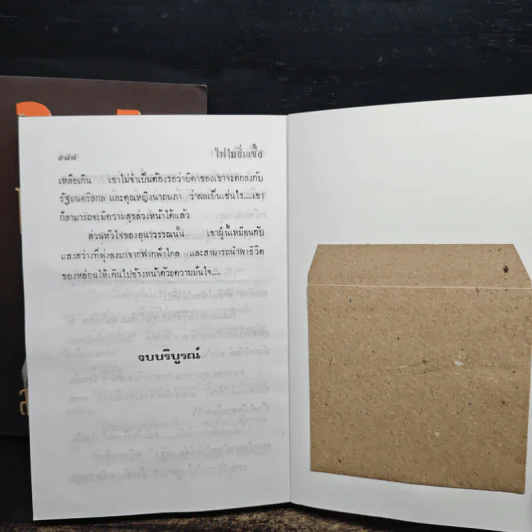 ๙๘๘ ไฟไม่สิ้นเชื้อ
เหลือเกิน เขาไม่จำเป็นต้องรอว่าบิดาของเขาจะตกลงกับ
รัฐบนตรีสกล และคุณหญิงนาถนภา ว่าผลเป็นเช่นไร....เขา
ก็สามารถจะมีความสุขล่วงหน้าได้แล้ว
ส่วนหัวใจของอุนาวรรณนั้น เขาผู้นี้เหมือนกับ
แสงสว่างที่พุ่งลงมาจากฟากฟ้าไกล และสามารถนำพาชีวิต
ของหล่อนให้เดินไปข้างหน้าด้วยความมั่นใจ....
จบบริบูรณ์